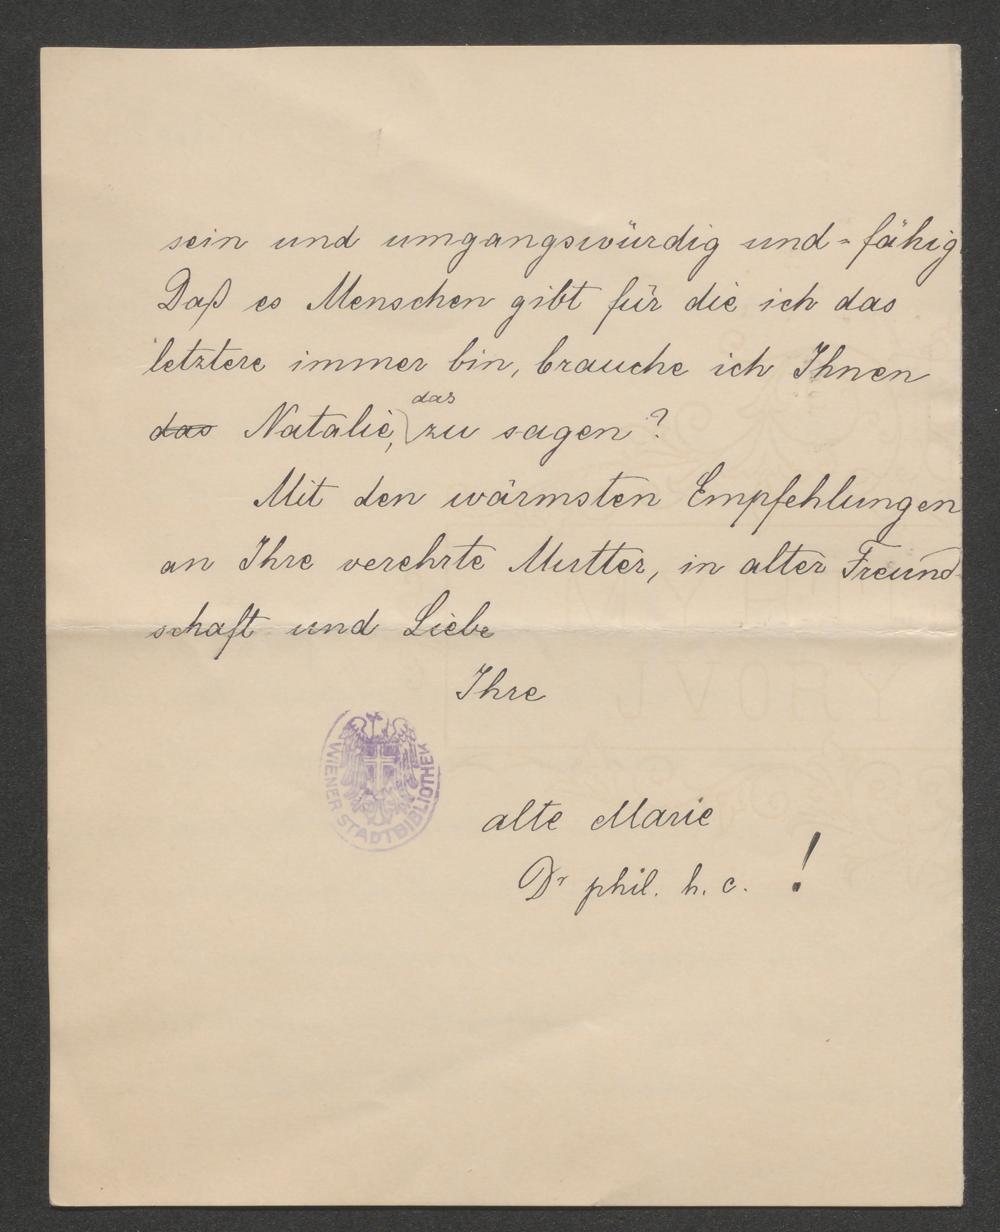 sein und umgangswürdig und-fähig.
Daß es Menschen gibt für die ich das
letztere immer bin, brauche ich Ihnen
das
das Natalie, zu sagen?
Mit den wärmsten Empfehlungen
an Ihre verehrte Mutter, in alter Freund-
schaft und Liebe
Ihre
WIENER STADTBIBLIOTHEK
alte Marie
Dr phil. h. c. !